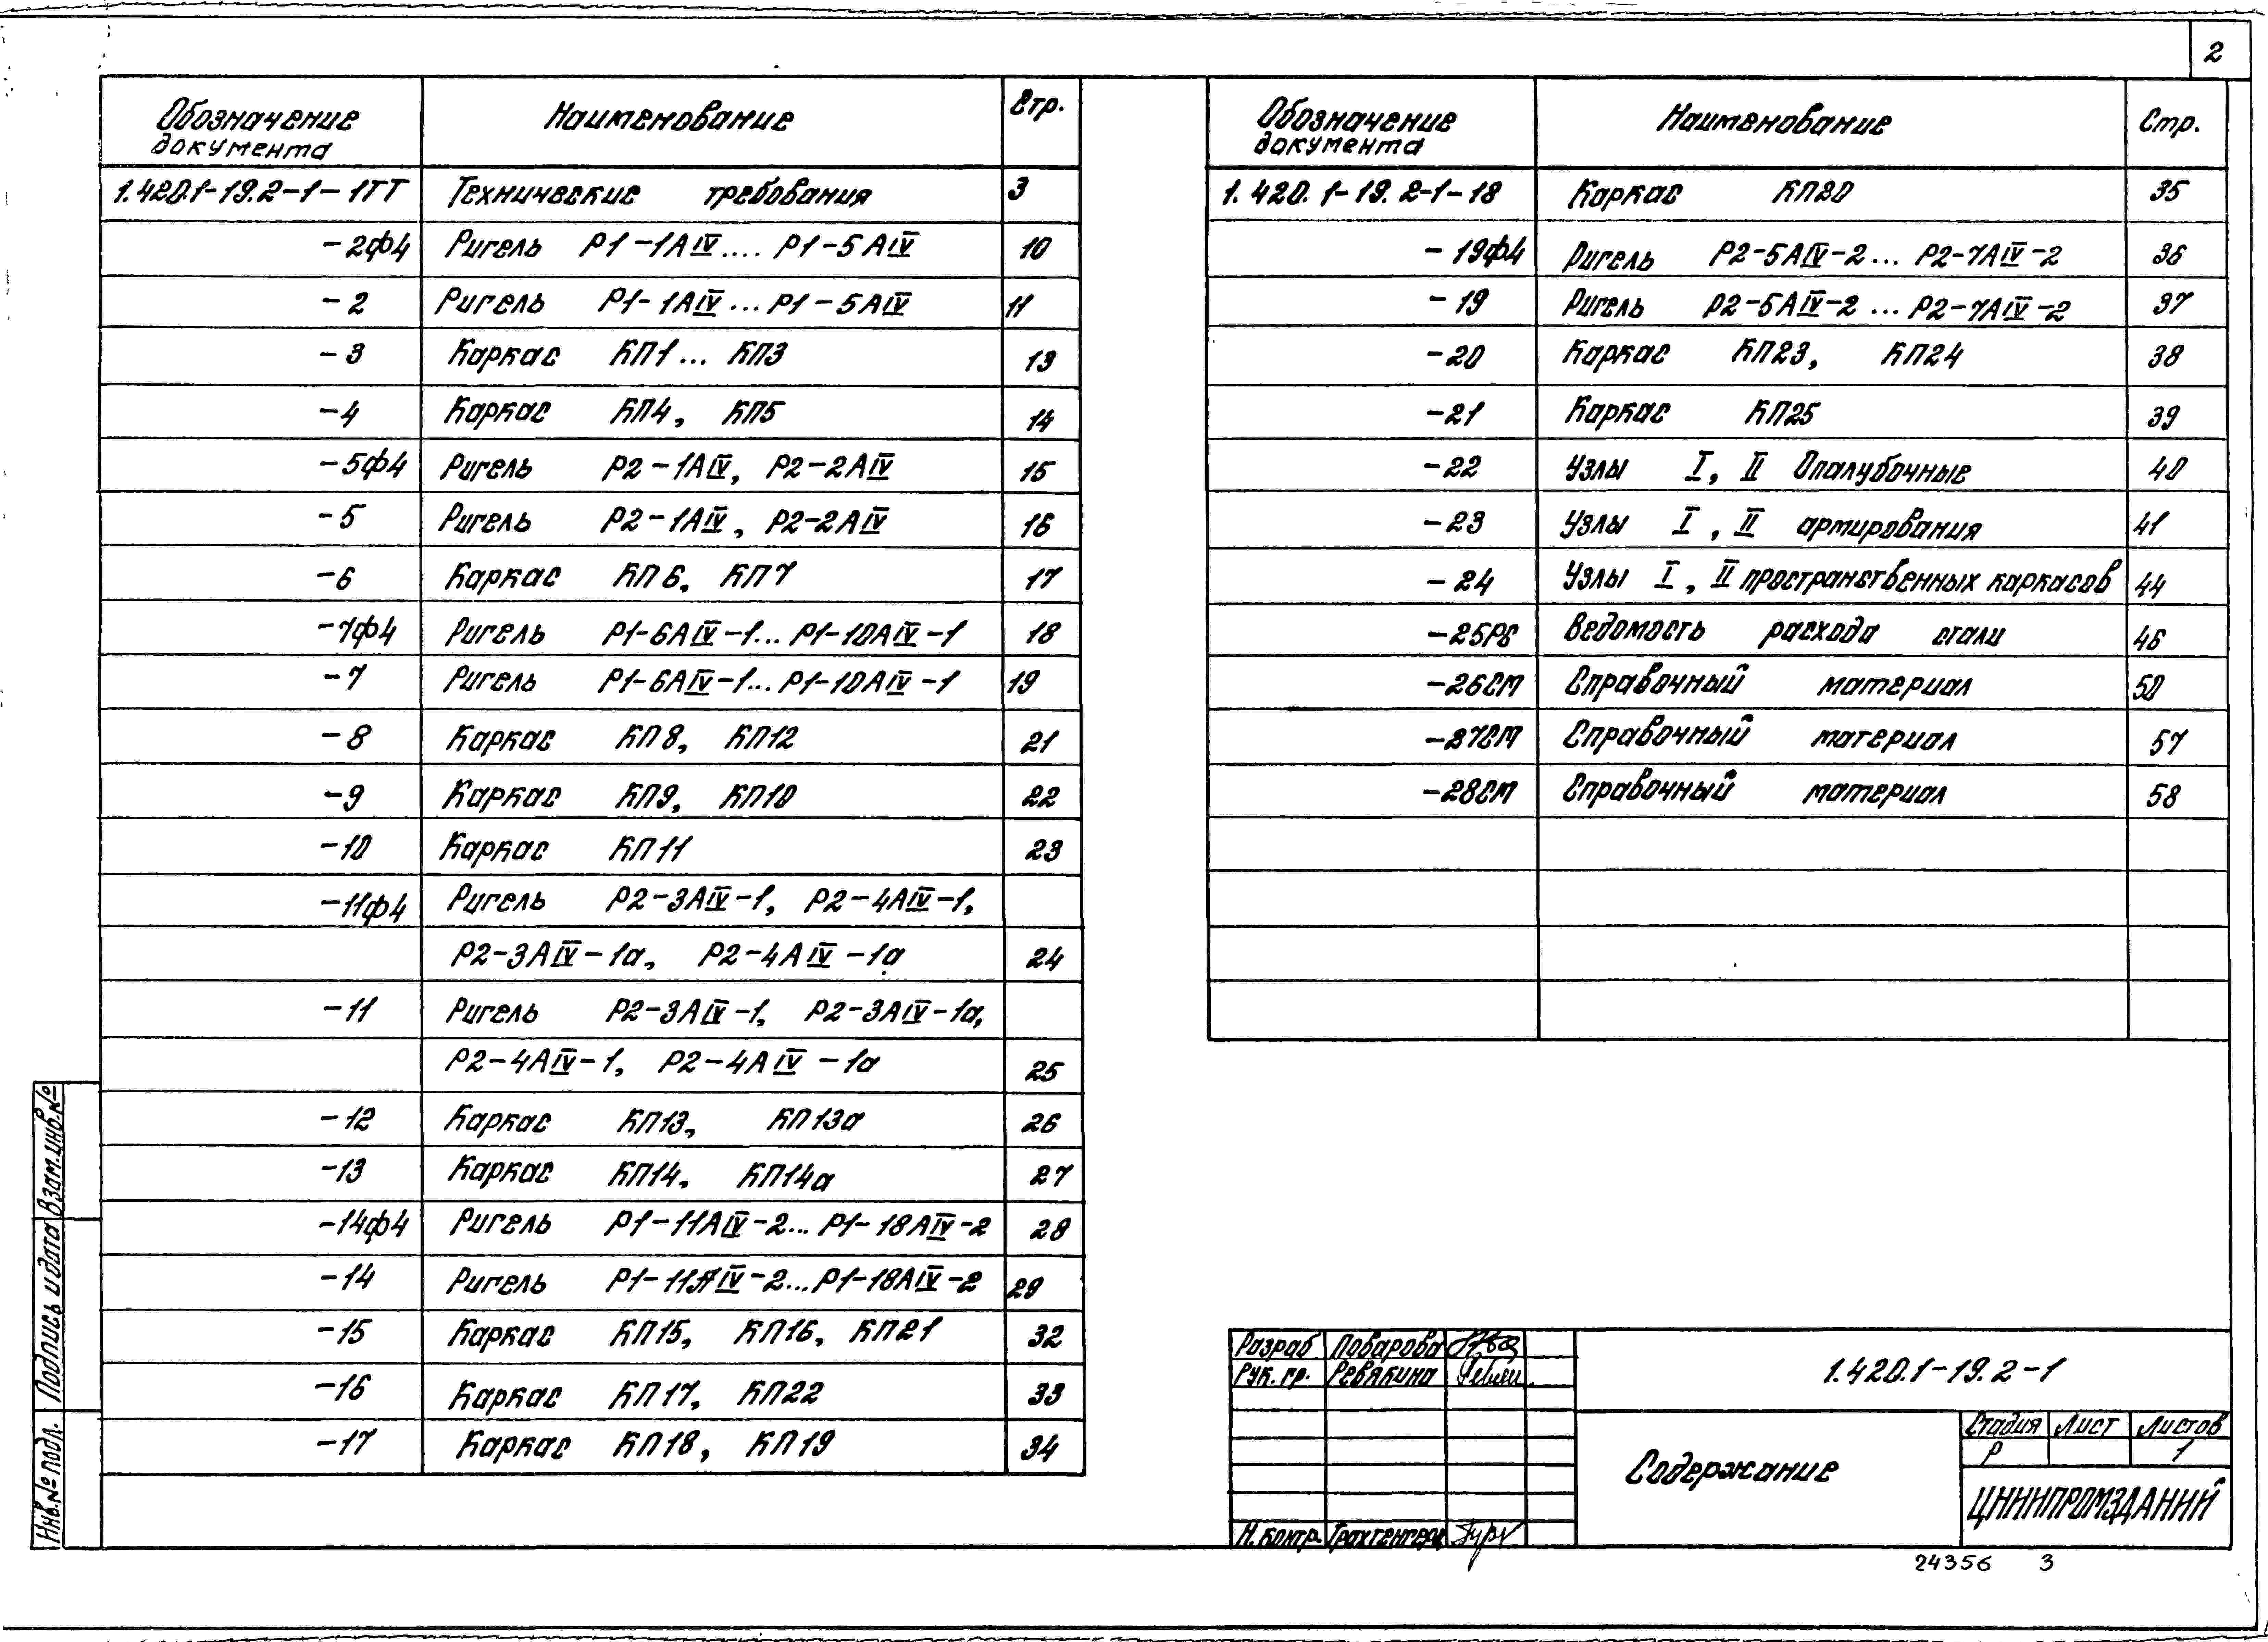 2
Обозначение документа Наименование Стр.
1.420.1-19.2-1-1ТТ Технические требования 3
-2ф4 Ригель Р1-1АIV.... Р1-5АIV 10
-2 Ригель Р1-1АIV...Р1-5АIV 11
-3 Каркас КП1... КП3 13
-4 Каркас КП4, КП5 14
-5ф4 Ригель Р2-1АIV, Р2-2АIV 15
-5 Ригель Р2-1АIV, Р2-2АIV 16
-6 Каркас КП6, КП7 17
-7ф4 Ригель Р1-6АIV-1... Р1-10АIV-1 18
-7 Ригель Р1-6АIV-1... Р1-10АIV-1 19
-8 Каркас КП8, КП12 21
-9 Каркас КП9, КП10 22
-10 Каркас КП11 23
-11ф4 Ригель Р2-3АIV-1, Р2-4АIV-1,
Р2-3АIV-1а, Р2-4АIV-1а 24
-11 Ригель Р2-3АIV-1, Р2-3АIV-1а,
Р2-4АIV-1, Р2-4АIV-1а 25
-12 Каркас КП13, КП13а 26
-13 Каркас КП14, КП14а 27
-14ф4 Ригель Р1-11АIV-2... Р1-18АIV-2 28
-14 Ригель Р1-11АIV-2...Р1-18АIV-2 29
-15 Каркас КП15, КП16, КП21 32
-16 Каркас КП17, КП22 33
-17 Каркас КП18, КП19 34
Обозначение документа Наименование Стр.
1.420.1-19.2-1-18 Каркас КП20 35
-19ф4 Ригель Р2-5АIV-2... Р2-7АIV-2 36
-19 Ригель Р2-5АIV-2 ... Р2-7АIV-2 37
-20 Каркас КП23, КП24 38
-21 Каркас КП25 39
-22 Узлы I, II Опалубочные 40
-23 Узлы I, II армирования 41
-24 Узлы I, II пространственных каркасов 44
-25РС Ведомость расхода стали 46
-26СМ Справочный материал 50
-27СМ Справочный материал 57
-28СМ Справочный материал 58
Инв.№ подл. Подпись и дата Взам.инв.№
Разраб Поварова
Рук. гр. Ревякина
Н. контр. Трахтенгерц
1.420.1-19.2-1
Содержание
Стадия Лист Листов
Р 1
ЦНИИПРОМЗДАНИЙ
24356 3